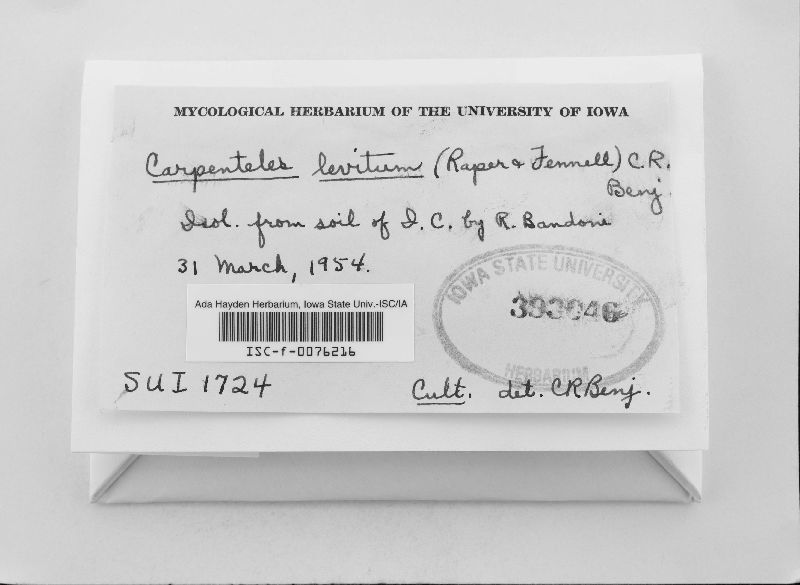 MYCOLOGICAL HERBARIUM OF THE UNIVERSITY OF IOWA
Carpenteles levitum (Raper & Fennell) C.R.
Benj.
Isol. from soil of I.C. by R. Bandoni
31 March, 1954.
IOWA STATE UNIVERSITY
393046
HERBARIUM
Ada Hayden Herbarium, Iowa State Univ.-ISC/IA
ISC-f-0076216
SUI 1724
Cult. det. CRBenj.